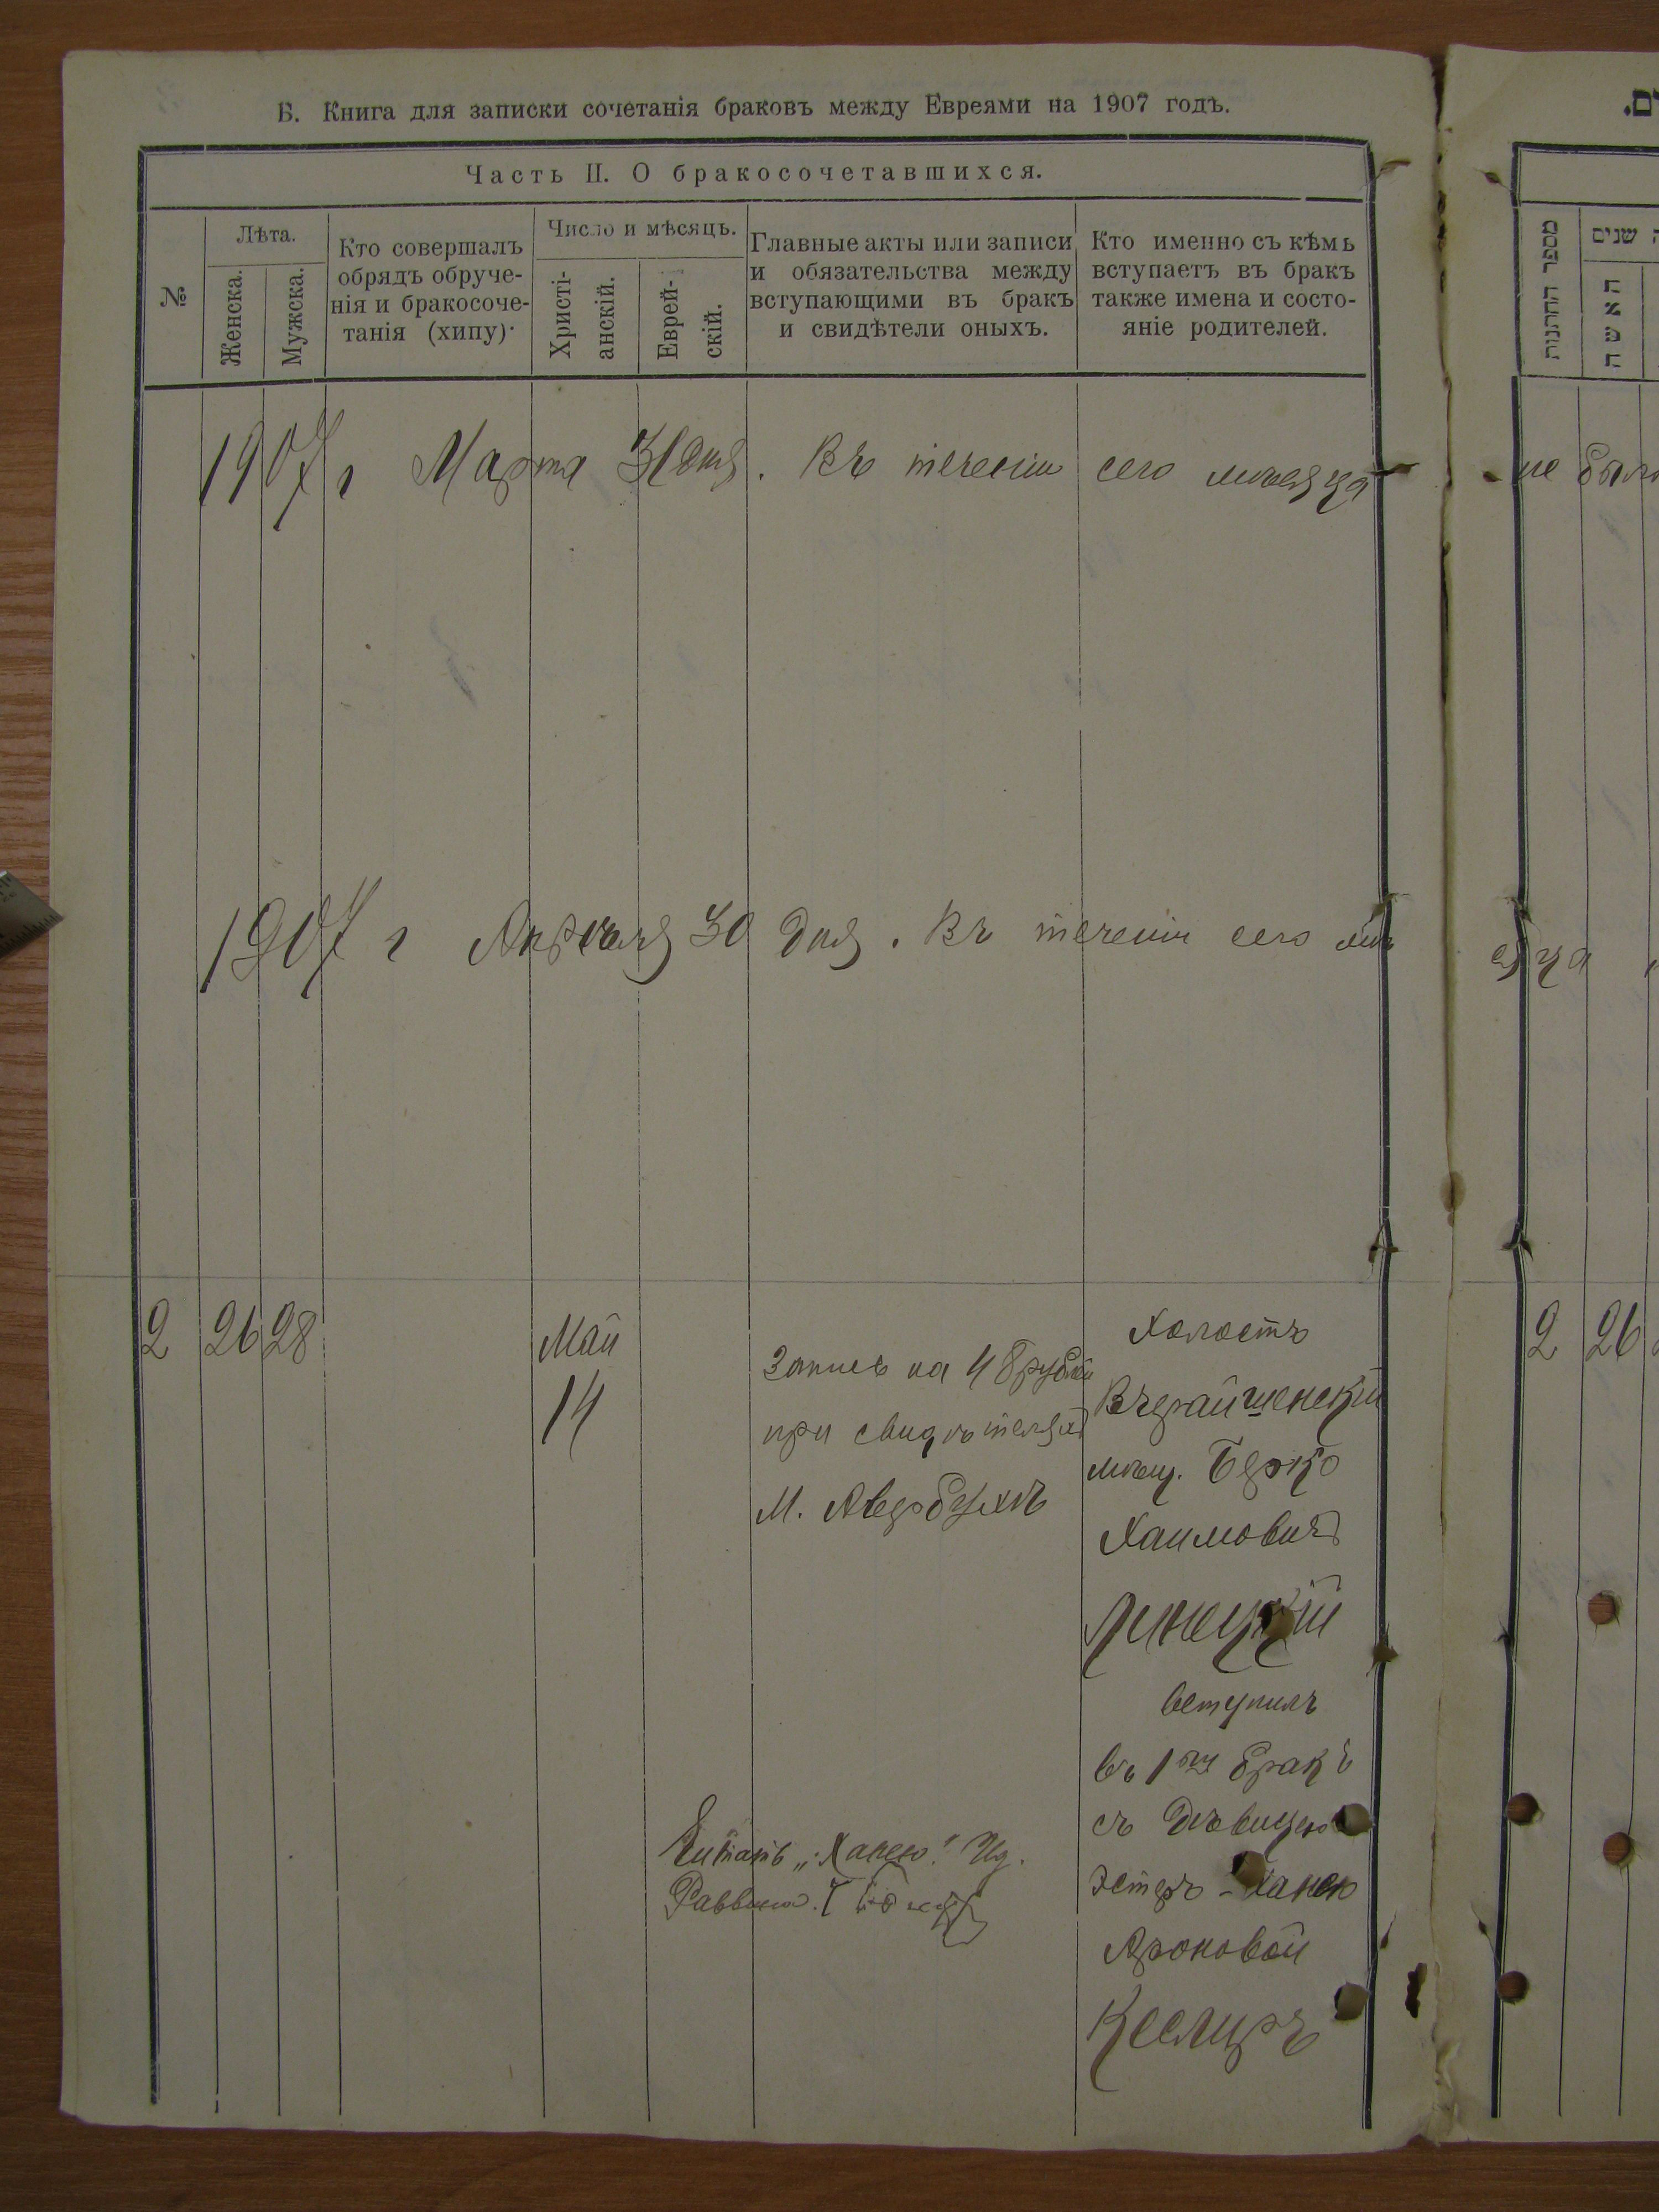 Б. Книга для записки сочетанія браковъ между Евреями на 1907 годъ.
Часть II. О бракосочетавшихся.
№
Лѣта.
Женска.
Мужска.
Кто совершалъ
обрядъ обруче-
нія и бракосоче-
танія (хипу).
Число и мѣсяцъ.
Христі-
анскій.
Еврей-
скій.
Главные акты или записи
и обязательства между
вступающими въ бракъ
и свидѣтели оныхъ.
Кто именно съ кѣмъ
вступаетъ въ бракъ
также имена и состо-
яніе родителей.
מספר החתונות
שנים
האשה
1907 г Марта 31 дня. Въ теченіи сего мѣсяца не было
1907 г Апрѣля 30 дня. Въ теченіи сего мѣсяца
2 26 28
Май
14
Запись на 48 рублей
при свидѣтеляхъ
М. Авербухъ
Холостъ
Вчерайшенскій
мѣщ. Берко
Хаимовичъ
Линецкій
вступилъ
въ 1й бракъ
съ Дѣвицею
Эстеръ-Ханею
Ароновой
Кеслеръ
Читать „Ханею“ Ид.
Раввина
2 26